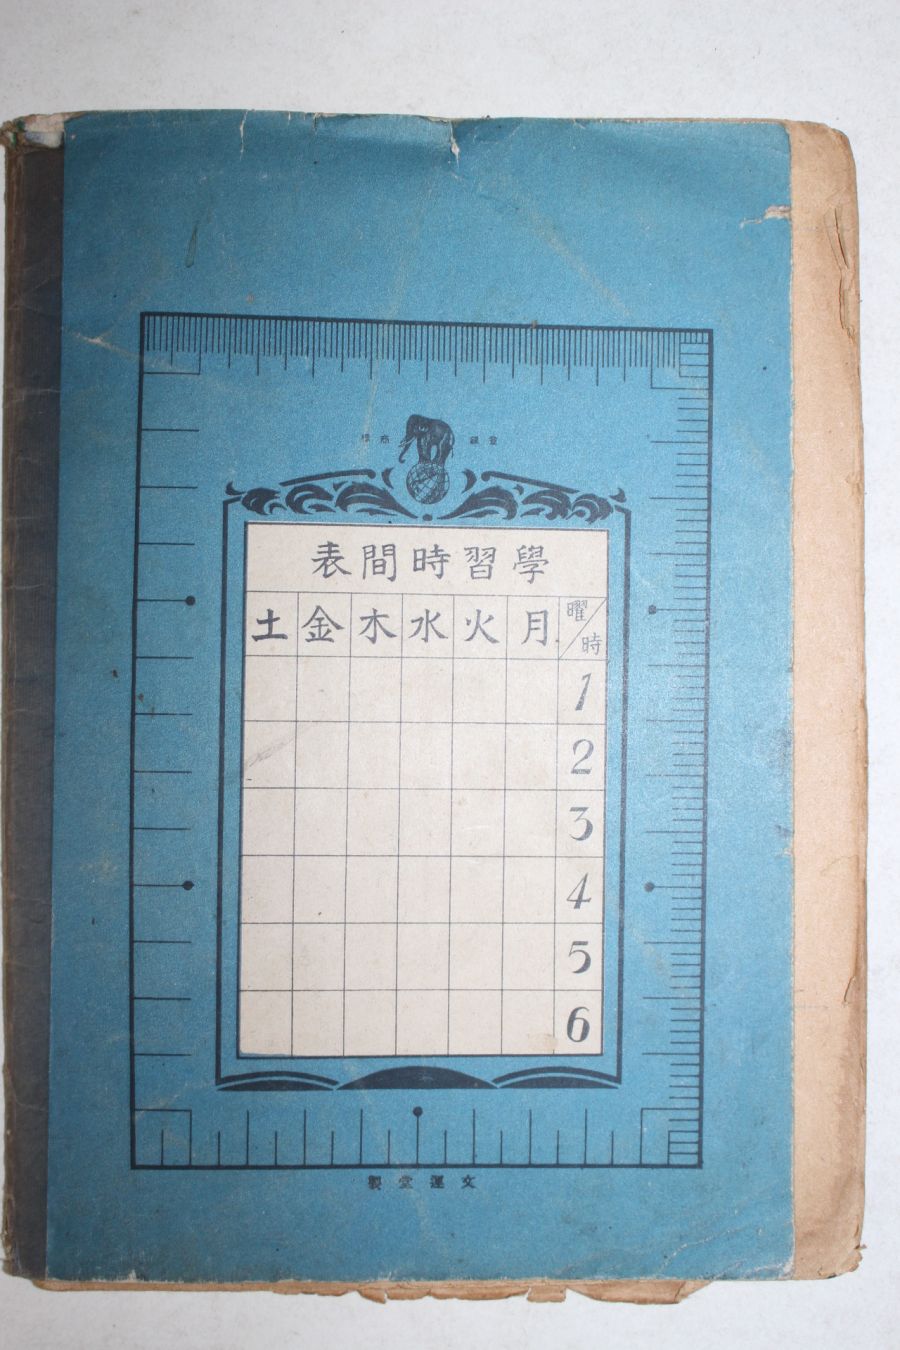 登録商標
學習時間表
曜/時 月 火 水 木 金 土
1
2
3
4
5
6
文運堂製